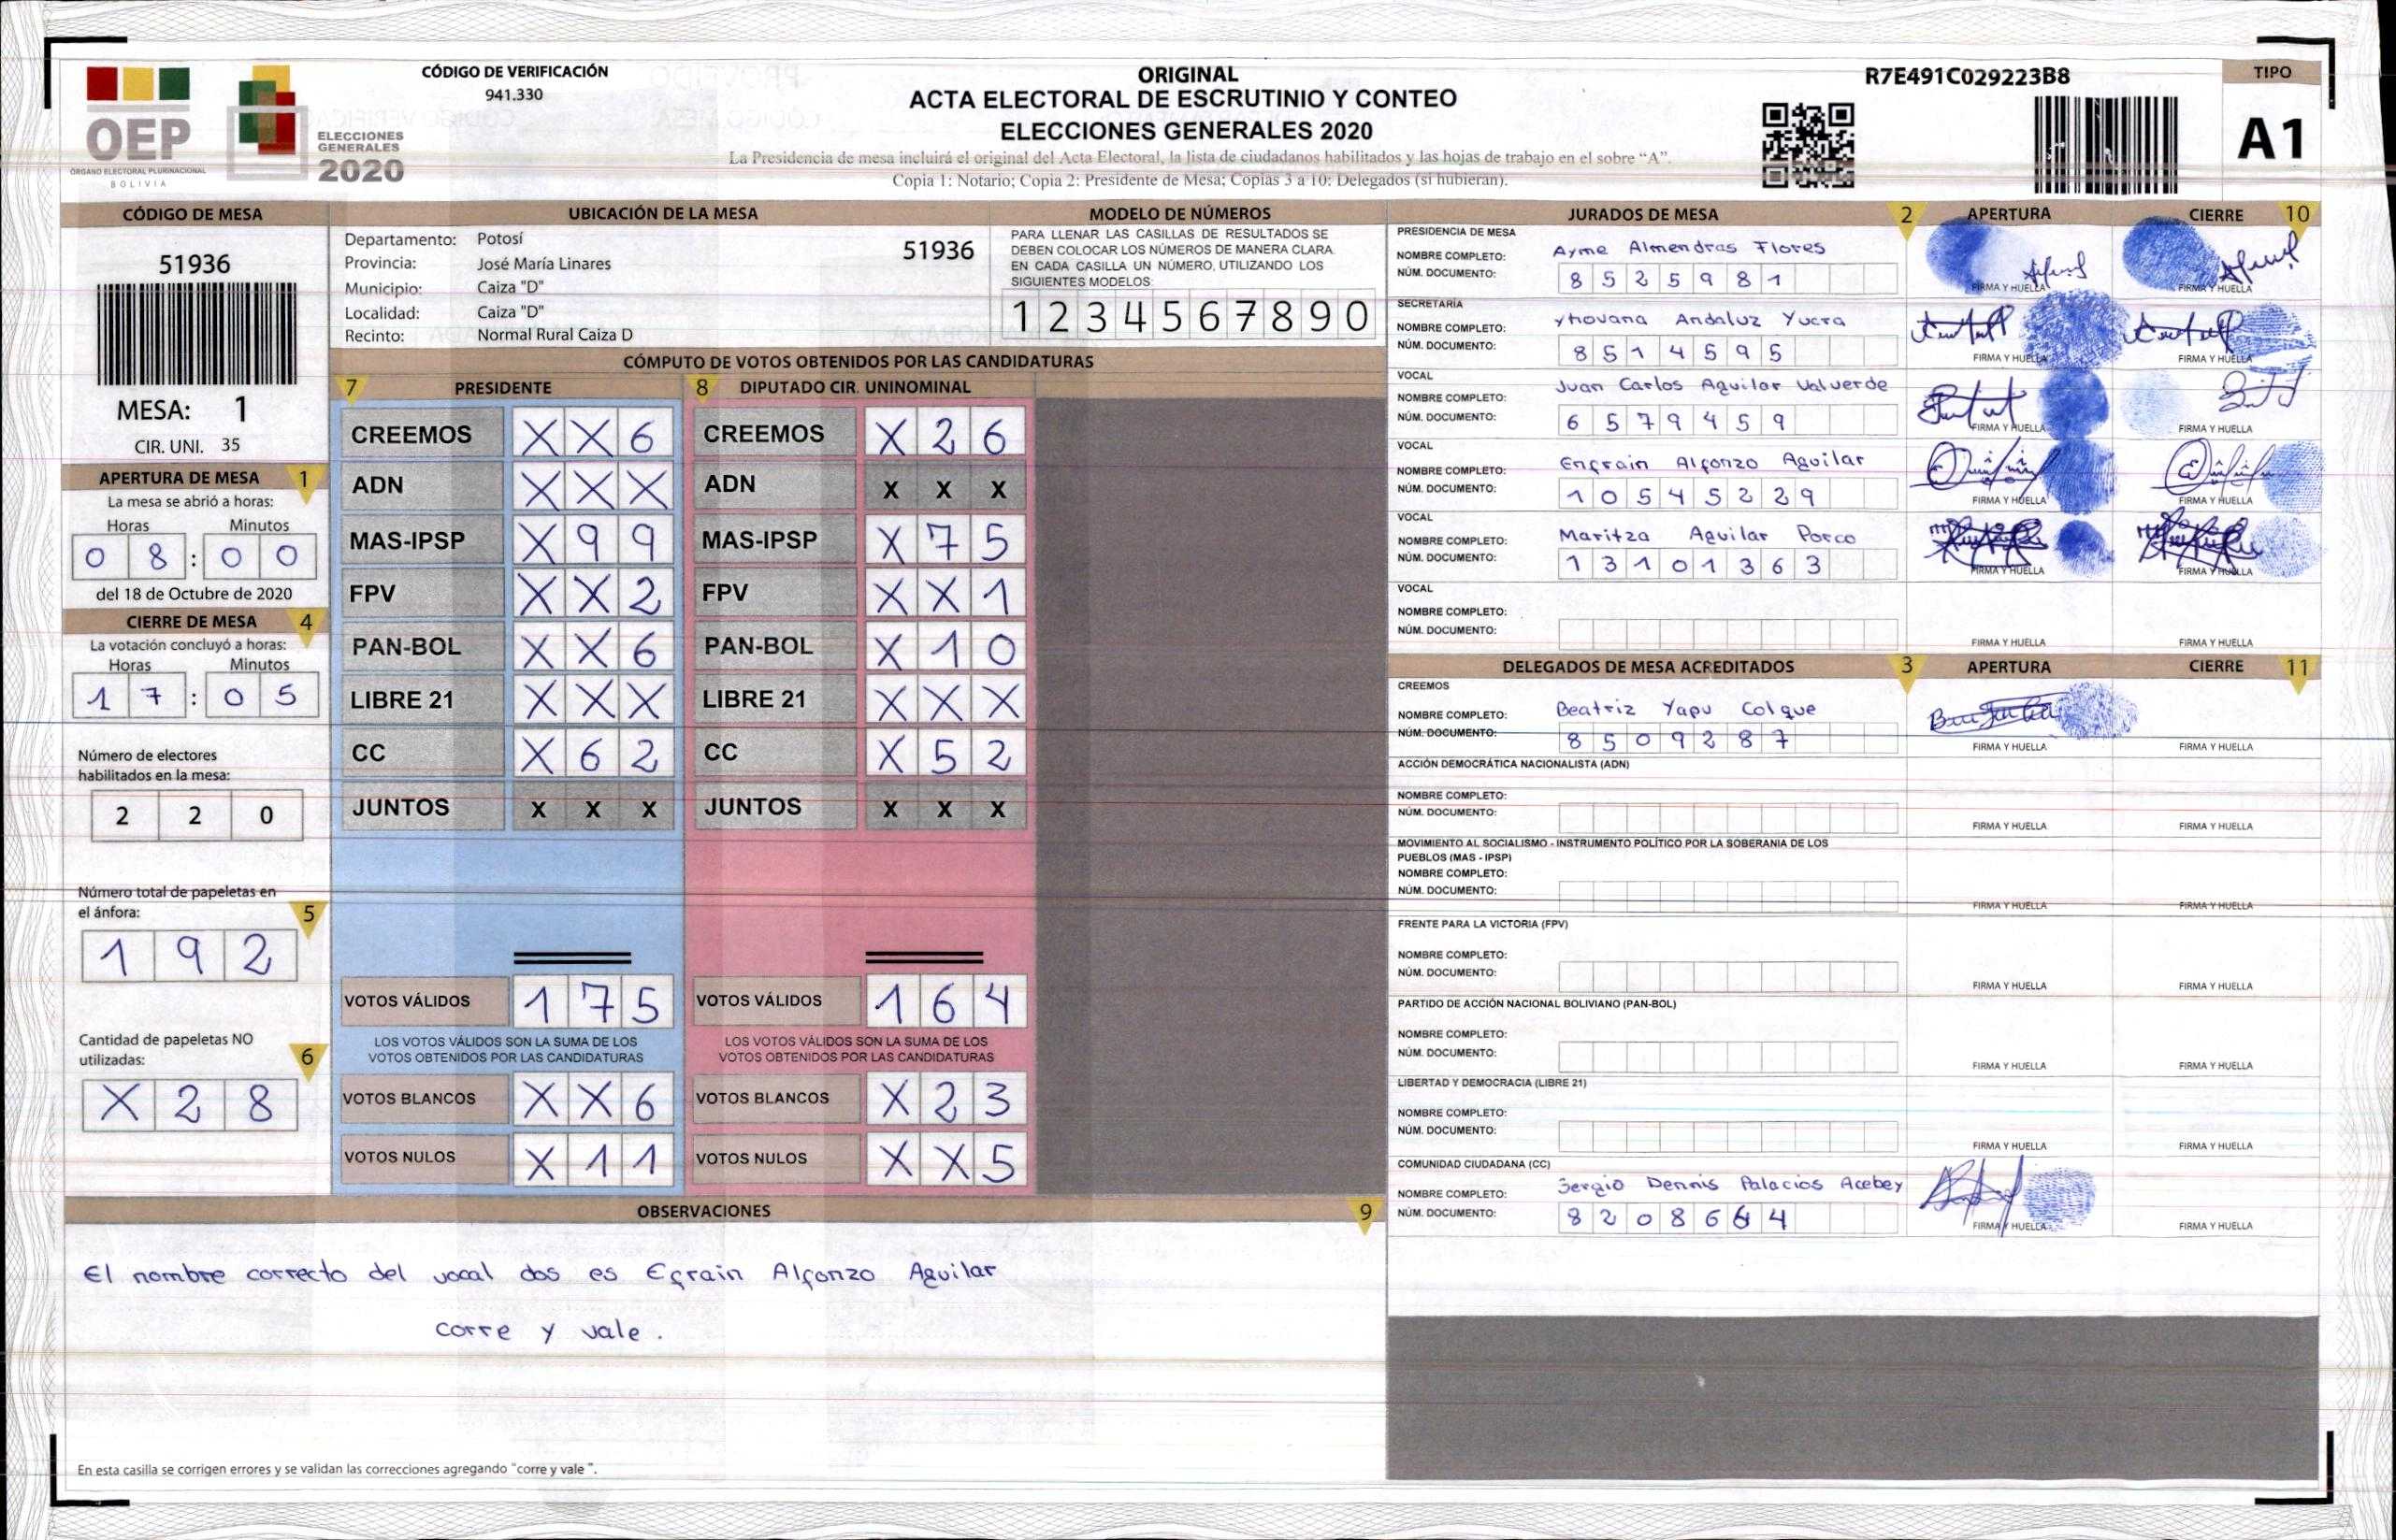 OEP
ÓRGANO ELECTORAL PLURINACIONAL
BOLIVIA
ELECCIONES
GENERALES
2020
CÓDIGO DE VERIFICACIÓN
941.330
ORIGINAL
ACTA ELECTORAL DE ESCRUTINIO Y CONTEO
ELECCIONES GENERALES 2020
La Presidencia de mesa incluirá el original del Acta Electoral, la lista de ciudadanos habilitados y las hojas de trabajo en el sobre “A”.
Copia 1: Notario; Copia 2: Presidente de Mesa; Copias 3 a 10: Delegados (si hubieran).
R7E491C029223B8
TIPO
A1
CÓDIGO DE MESA
51936
MESA: 1
CIR. UNI. 35
APERTURA DE MESA 1
La mesa se abrió a horas:
Horas Minutos
0 8 : 0 0
del 18 de Octubre de 2020
CIERRE DE MESA 4
La votación concluyó a horas:
Horas Minutos
1 7 : 0 5
Número de electores
habilitados en la mesa:
2 2 0
Número total de papeletas en
el ánfora: 5
1 9 2
Cantidad de papeletas NO
utilizadas: 6
X 2 8
UBICACIÓN DE LA MESA
Departamento: Potosí
51936
Provincia: José María Linares
Municipio: Caiza "D"
Localidad: Caiza "D"
Recinto: Normal Rural Caiza D
MODELO DE NÚMEROS
PARA LLENAR LAS CASILLAS DE RESULTADOS SE
DEBEN COLOCAR LOS NÚMEROS DE MANERA CLARA.
EN CADA CASILLA UN NÚMERO, UTILIZANDO LOS
SIGUIENTES MODELOS:
1 2 3 4 5 6 7 8 9 0
CÓMPUTO DE VOTOS OBTENIDOS POR LAS CANDIDATURAS
7 PRESIDENTE 8 DIPUTADO CIR. UNINOMINAL
CREEMOS X X 6 CREEMOS X 2 6
ADN X X X ADN X X X
MAS-IPSP X 9 9 MAS-IPSP X 7 5
FPV X X 2 FPV X X 1
PAN-BOL X X 6 PAN-BOL X 1 0
LIBRE 21 X X X LIBRE 21 X X X
CC X 6 2 CC X 5 2
JUNTOS X X X JUNTOS X X X
VOTOS VÁLIDOS 1 7 5 VOTOS VÁLIDOS 1 6 4
LOS VOTOS VÁLIDOS SON LA SUMA DE LOS LOS VOTOS VÁLIDOS SON LA SUMA DE LOS
VOTOS OBTENIDOS POR LAS CANDIDATURAS VOTOS OBTENIDOS POR LAS CANDIDATURAS
VOTOS BLANCOS X X 6 VOTOS BLANCOS X 2 3
VOTOS NULOS X 1 1 VOTOS NULOS X X 5
OBSERVACIONES 9
El nombre correcto del vocal dos es Efrain Alfonzo Aguilar
corre y vale.
En esta casilla se corrigen errores y se validan las correcciones agregando "corre y vale ".
JURADOS DE MESA 2 APERTURA CIERRE 10
PRESIDENCIA DE MESA
NOMBRE COMPLETO: Ayme Almendras Flores
NÚM. DOCUMENTO: 8 5 2 5 9 8 1
FIRMA Y HUELLA FIRMA Y HUELLA
SECRETARÍA
NOMBRE COMPLETO: Yhovana Andaluz Yucra
NÚM. DOCUMENTO: 8 5 1 4 5 9 5
FIRMA Y HUELLA FIRMA Y HUELLA
VOCAL
NOMBRE COMPLETO: Juan Carlos Aguilar Valverde
NÚM. DOCUMENTO: 6 5 7 9 4 5 9
FIRMA Y HUELLA FIRMA Y HUELLA
VOCAL
NOMBRE COMPLETO: Enfrain Alfonzo Aguilar
NÚM. DOCUMENTO: 1 0 5 4 5 2 2 9
FIRMA Y HUELLA FIRMA Y HUELLA
VOCAL
NOMBRE COMPLETO: Maritza Aguilar Porco
NÚM. DOCUMENTO: 1 3 1 0 1 3 6 3
FIRMA Y HUELLA FIRMA Y HUELLA
VOCAL
NOMBRE COMPLETO:
NÚM. DOCUMENTO:
FIRMA Y HUELLA FIRMA Y HUELLA
DELEGADOS DE MESA ACREDITADOS 3 APERTURA CIERRE 11
CREEMOS
NOMBRE COMPLETO: Beatriz Yapu Colque
NÚM. DOCUMENTO: 8 5 0 9 2 8 7
FIRMA Y HUELLA FIRMA Y HUELLA
ACCIÓN DEMOCRÁTICA NACIONALISTA (ADN)
NOMBRE COMPLETO:
NÚM. DOCUMENTO:
FIRMA Y HUELLA FIRMA Y HUELLA
MOVIMIENTO AL SOCIALISMO - INSTRUMENTO POLÍTICO POR LA SOBERANIA DE LOS
PUEBLOS (MAS - IPSP)
NOMBRE COMPLETO:
NÚM. DOCUMENTO:
FIRMA Y HUELLA FIRMA Y HUELLA
FRENTE PARA LA VICTORIA (FPV)
NOMBRE COMPLETO:
NÚM. DOCUMENTO:
FIRMA Y HUELLA FIRMA Y HUELLA
PARTIDO DE ACCIÓN NACIONAL BOLIVIANO (PAN-BOL)
NOMBRE COMPLETO:
NÚM. DOCUMENTO:
FIRMA Y HUELLA FIRMA Y HUELLA
LIBERTAD Y DEMOCRACIA (LIBRE 21)
NOMBRE COMPLETO:
NÚM. DOCUMENTO:
FIRMA Y HUELLA FIRMA Y HUELLA
COMUNIDAD CIUDADANA (CC)
NOMBRE COMPLETO: Sergio Dennis Palacios Acebey
NÚM. DOCUMENTO: 8 2 0 8 6 6 4
FIRMA Y HUELLA FIRMA Y HUELLA